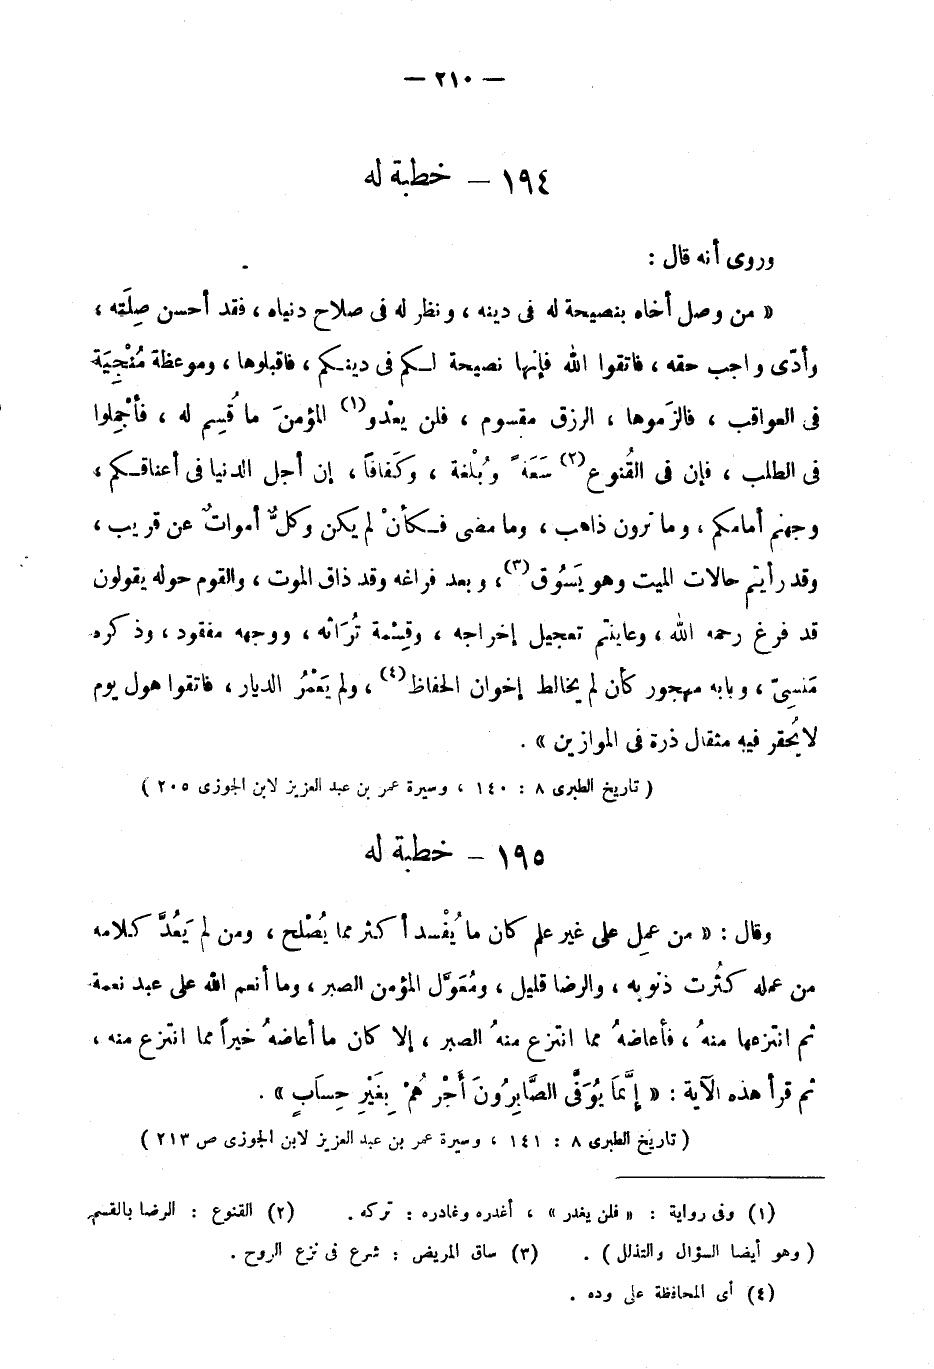 — ٢١٠ —
١٩٤ — خطبة له
وروى أنه قال :
« من وصل أخاه بنصيحة له فى دينه ، ونظر له فى صلاح دنياه ، فقد أحسن صِلَتَه ،
وأدّى واجب حقه ، فاتقوا الله فإنها نصيحة لكم فى دينكم ، فاقبلوها ، وموعظة مُنْجِيَة
فى العواقب ، فالزَموها ، الرزق مقسوم ، فلن يعْدو(١) المؤمنَ ما قُسِم له ، فأجْمِلوا
فى الطلب ، فإن فى القُنوع(٢) سَعَة ً وبُلْغة ، وكَفافاً ، إن أجل الدنيا فى أعناقكم ،
وجهنم أمامكم ، وما ترون ذاهب ، وما مضى فكأنْ لم يكن وكلٌّ أمواتٌ عن قريب ،
وقد رأيتم حالات الميت وهو يَسُوق(٣)، وبعد فراغه وقد ذاق الموت ، والقوم حوله يقولون
قد فرغ رحمه الله ، وعاينتم تعجيل إخراجه ، وقِسْمة تُرَاثه ، ووجهه مفقود ، وذكره
مَنسِىّ ، وبابه مهجور كأن لم يخالط إخوان الحفاظ(٤) ، ولم يَعْمُر الديار ، فاتقوا هول يوم
لا يُحقر فيه مثقال ذرة فى الموازين » .
( تاريخ الطبرى ٨ : ١٤٠ ، وسيرة عمر بن عبد العزيز لابن الجوزى ٢٠٥ )
١٩٥ — خطبة له
وقال : « من عمِل على غير علم كان ما يُفْسد أكثر مما يُصْلح ، ومن لم يَعُدَّ كلامه
من عمله كثُرت ذنوبه ، والرضا قليل ، ومُعَوَّل المؤمن الصبر ، وما أنعم الله على عبد نعمة
ثم انتزعها منهُ ، فأعاضهُ مما انتزع منهُ الصبر ، إلا كان ما أعاضهُ خيراً مما انتزع منه ،
ثم قرأ هذه الآية : « إِنَّمَا يُوَفَّى الصَّابِرُونَ أَجْرَهُمْ بِغَيْرِ حِسَابٍ » .
( تاريخ الطبرى ٨ : ١٤١ ، وسيرة عمر بن عبد العزيز لابن الجوزى ص ٢١٣ )
(١) وفى رواية : « فلن يغدر » ، أغدره وغادره : تركه . (٢) القنوع : الرضا بالقسم
( وهو أيضا السؤال والتذلل ) . (٣) ساق المريض : شرع فى نزع الروح .
(٤) أى المحافظة على وده .